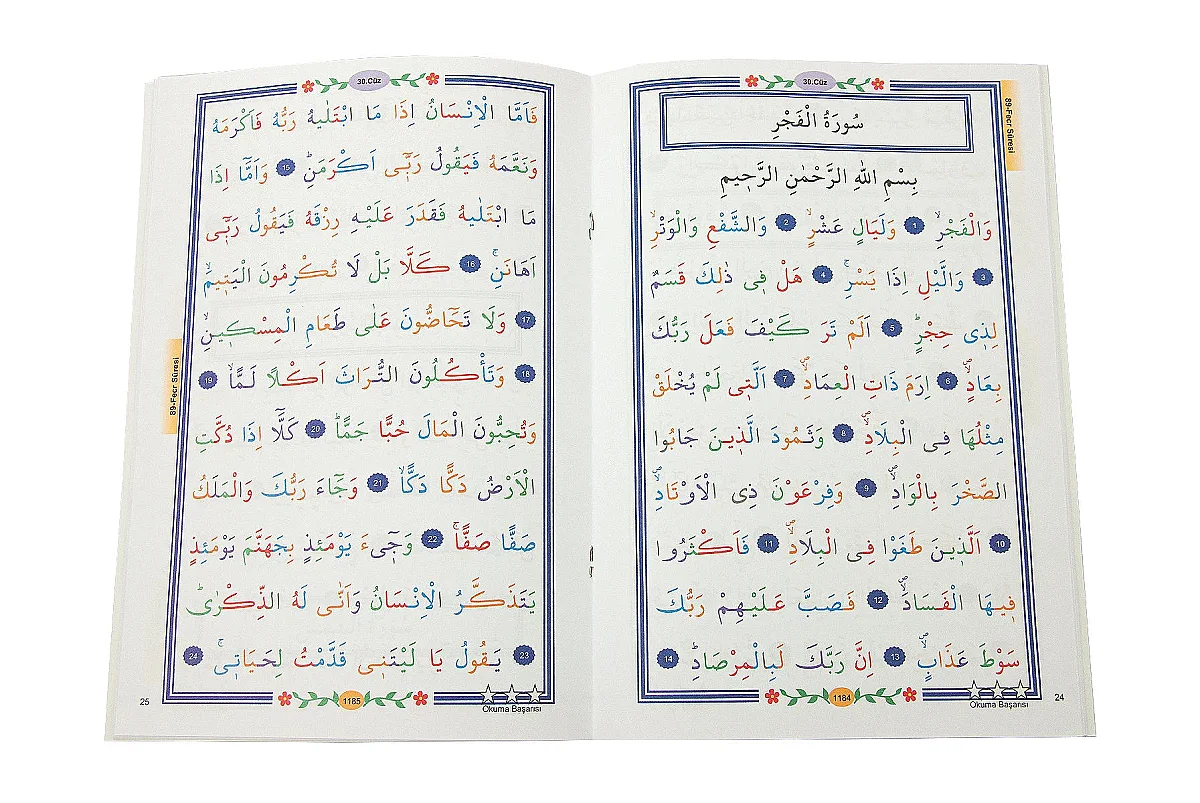 30.Cüz
89-Fecr Sûresi
سُورَةُ الْفَجْرِ
بِسْمِ اللهِ الرَّحْمٰنِ الرَّح۪يمِ
وَالْفَجْرِۙ 1 وَلَيَالٍ عَشْرٍۙ 2 وَالشَّفْعِ وَالْوَتْرِۙ
3 وَالَّيْلِ اِذَا يَسْرِۚ 4 هَلْ ف۪ي ذٰلِكَ قَسَمٌ
لِذ۪ي حِجْرٍۜ 5 اَلَمْ تَرَ كَيْفَ فَعَلَ رَبُّكَ
بِعَادٍۙ 6 اِرَمَ ذَاتِ الْعِمَادِۙ 7 اَلَّت۪ي لَمْ يُخْلَقْ
مِثْلُهَا فِي الْبِلَادِۙ 8 وَثَمُودَ الَّذ۪ينَ جَابُوا
الصَّخْرَ بِالْوَادِۙ 9 وَفِرْعَوْنَ ذِي الْاَوْتَادِۙ
10 اَلَّذ۪ينَ طَغَوْا فِي الْبِلَادِۙ 11 فَاَكْثَرُوا
ف۪يهَا الْفَسَادَۙ 12 فَصَبَّ عَلَيْهِمْ رَبُّكَ
سَوْطَ عَذَابٍۙ 13 اِنَّ رَبَّكَ لَبِالْمِرْصَادِۜ 14
1184
Okuma Başarısı
24
30.Cüz
89-Fecr Sûresi
فَاَمَّا الْاِنْسَانُ اِذَا مَا ابْتَلٰيهُ رَبُّهُ فَاَكْرَمَهُ
وَنَعَّمَهُ فَيَقُولُ رَبّ۪ٓي اَكْرَمَنِۜ 15 وَاَمَّٓا اِذَا
مَا ابْتَلٰيهُ فَقَدَرَ عَلَيْهِ رِزْقَهُ فَيَقُولُ رَبّ۪ٓي
اَهَانَنِۚ 16 كَلَّا بَلْ لَا تُكْرِمُونَ الْيَت۪يمَۙ
17 وَلَا تَحَٓاضُّونَ عَلٰى طَعَامِ الْمِسْك۪ينِۙ
18 وَتَأْكُلُونَ التُّرَاثَ اَكْلًا لَمًّاۙ 19
وَتُحِبُّونَ الْمَالَ حُبًّا جَمًّاۜ 20 كَلَّٓا اِذَا دُكَّتِ
الْاَرْضُ دَكًّا دَكًّاۙ 21 وَجَٓاءَ رَبُّكَ وَالْمَلَكُ
صَفًّا صَفًّاۚ 22 وَج۪ٓيءَ يَوْمَئِذٍ بِجَهَنَّمَ يَوْمَئِذٍ
يَتَذَكَّرُ الْاِنْسَانُ وَاَنّٰى لَهُ الذِّكْرٰىۜ
23 يَقُولُ يَا لَيْتَن۪ي قَدَّمْتُ لِحَيَات۪يۚ 24
1185
Okuma Başarısı
25